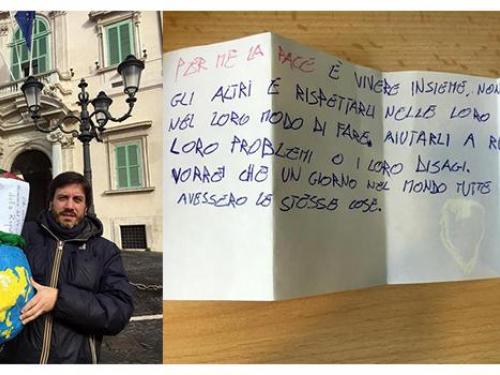 PER ME LA PACE È VIVERE INSIEME, NON
GLI ALTRI E RISPETTARLI NELLE LORO
NEL LORO MODO DI FARE, AIUTARLI A
LORO PROBLEMI O I LORO DISAGI.
VORREI CHE UN GIORNO NEL MONDO TUTTI
AVESSERO LE STESSE COSE.